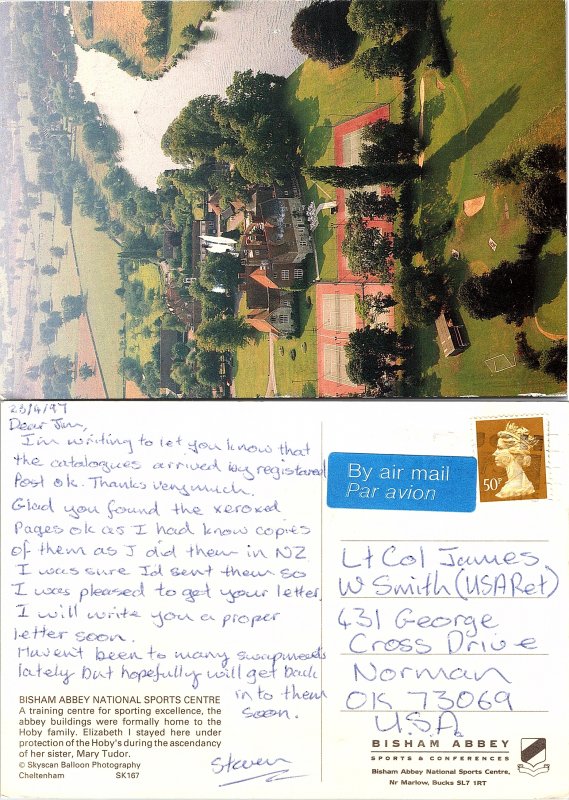 23/4/97
Dear Jim,
I'm writing to let you know that
the catalogues arrived by registered
Post ok. Thanks very much.
Glad you found the xeroxed
Pages ok as I had know copies
of them as I did them in NZ
I was sure I'd sent them so
I was pleased to get your letter,
I will write you a proper
letter soon.
Haven't been to many swapmeets
lately but hopefully will get back
in to them
soon.
Steven
BISHAM ABBEY NATIONAL SPORTS CENTRE
A training centre for sporting excellence, the
abbey buildings were formally home to the
Hoby family. Elizabeth I stayed here under
protection of the Hoby's during the ascendancy
of her sister, Mary Tudor.
© Skyscan Balloon Photography
Cheltenham SK167
By air mail
Par avion
50P
Lt Col James
W Smith (USA Ret)
431 George
Cross Drive
Norman
OK 73069
U.S.A
BISHAM ABBEY
SPORTS & CONFERENCES
Bisham Abbey National Sports Centre,
Nr Marlow, Bucks SL7 1RT